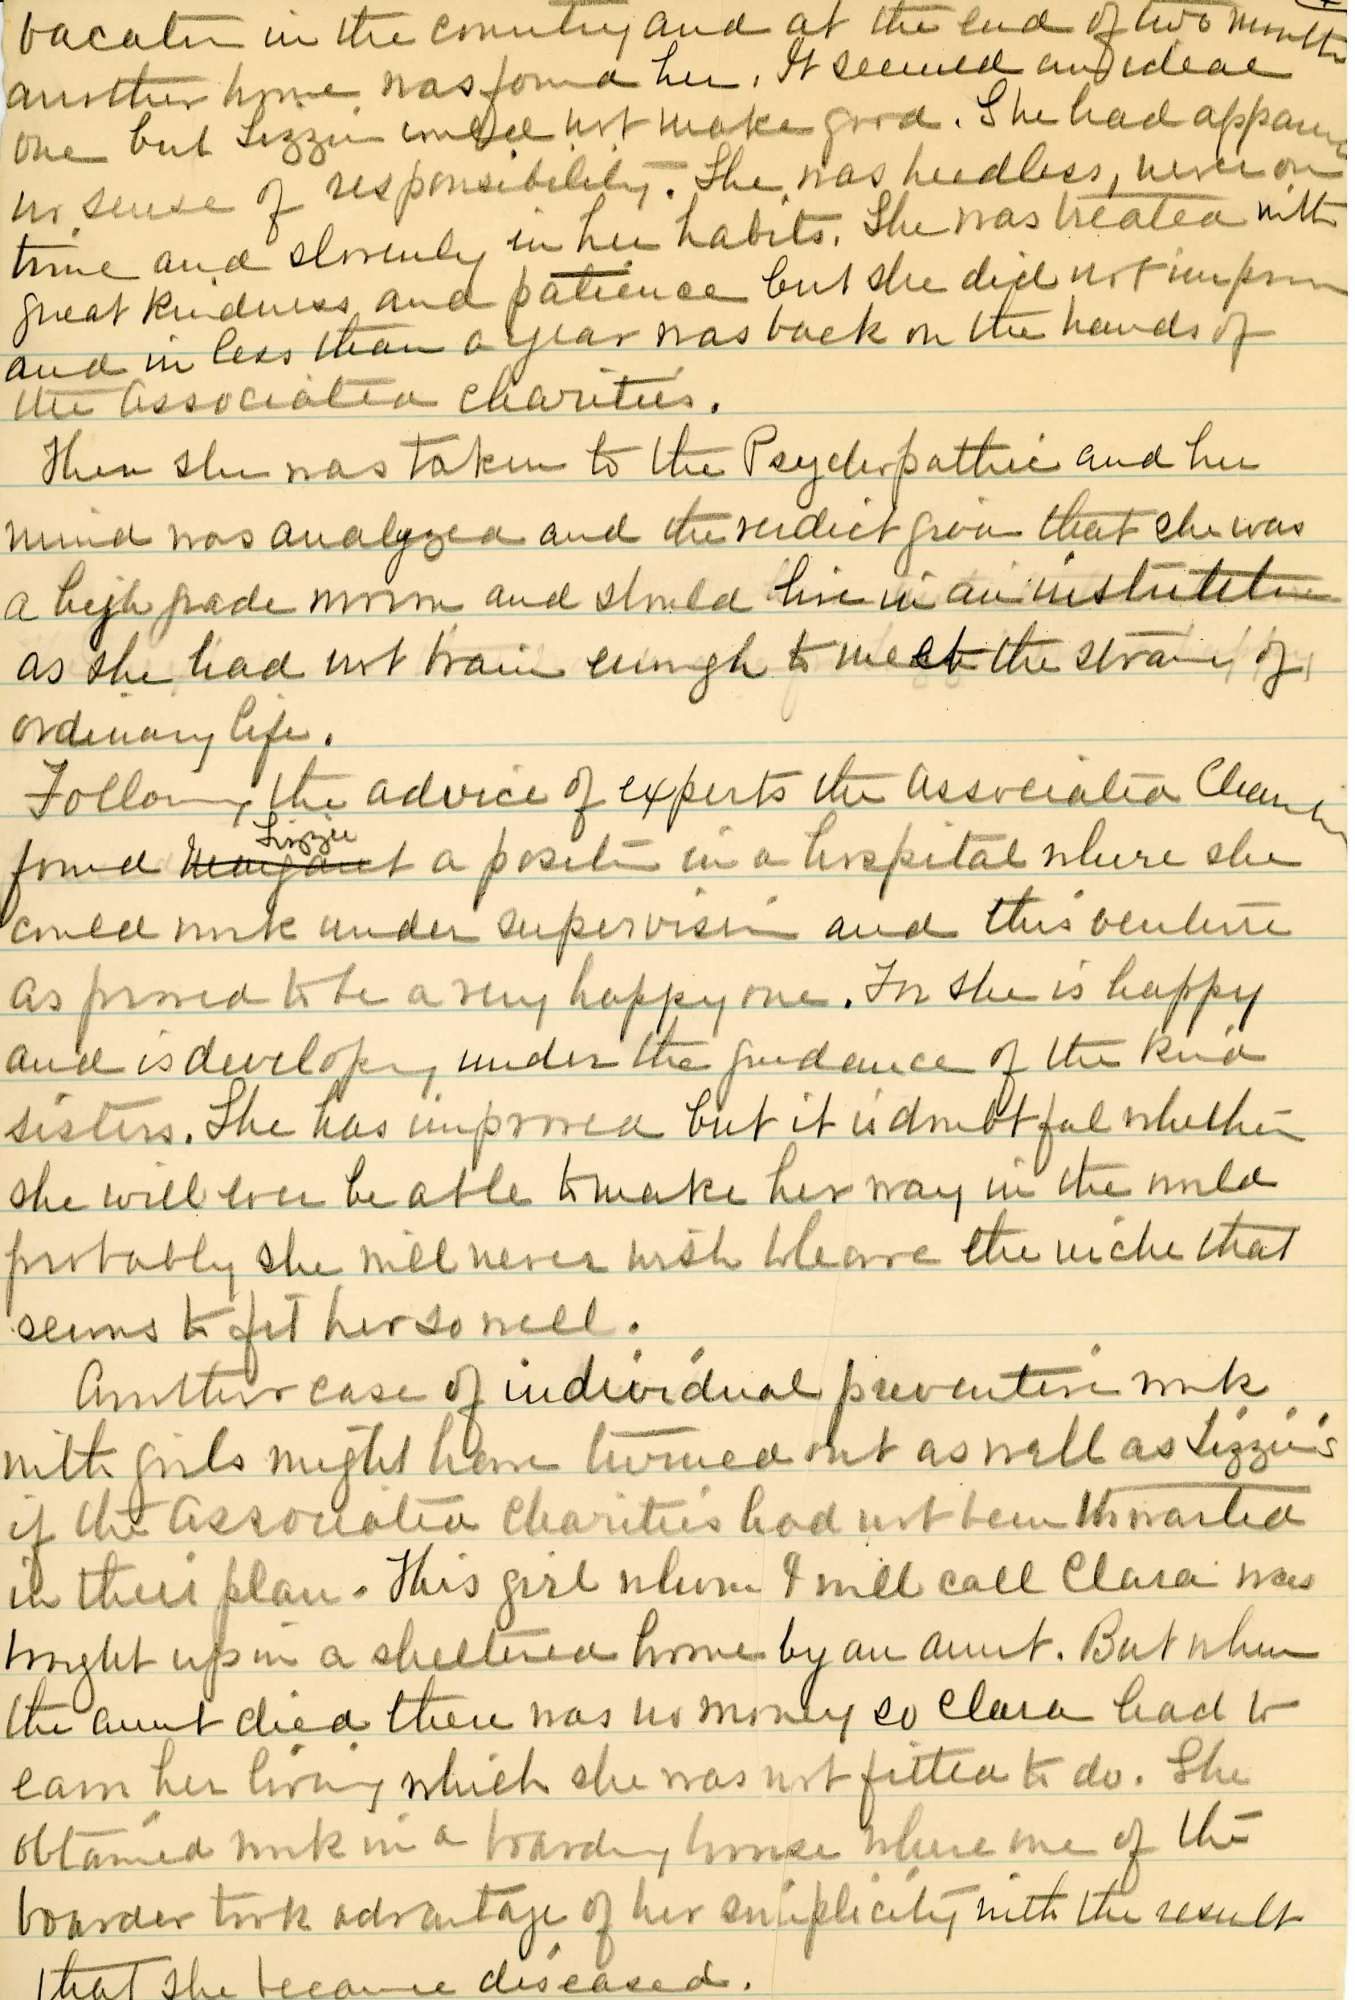 vacation in the country and at the end of two months
another home was found her. It seemed an ideal
one but Lizzie could not make good. She had apparen
no sense of responsibility. She was heedless, never on
time and slovenly in her habits. She was treated with
great kindness and patience but she did not improve
and in less than a year was back on the hands of
the Associated Charities.
Then she was taken to the Psychopathic and her
mind was analyzed and the verdict given that she was
a high grade moron and should live in an institution
as she had not brain enough to meet the strain of
ordinary life.
Following the advice of experts the Associated Charities
Lizzie
found Margaret a position in a hospital where she
could work under supervision and this venture
as proved to be a very happy one. For she is happy
and is developing under the guidance of the kind
sisters. She has improved but it is doubtful whether
she will ever be able to make her way in the world
probably she will never wish to leave the niche that
seems to fit her so well.
Another case of individual preventive work
with girls might have turned out as well as Lizzie's
if the Associated Charities had not been thwarted
in their plan. This girl whom I will call Clara was
brought up in a sheltered home by an aunt. But when
the aunt died there was no money so Clara had to
earn her living which she was not fitted to do. She
obtained work in a boarding house where one of the
boarder took advantage of her simplicity with the result
that she became diseased.